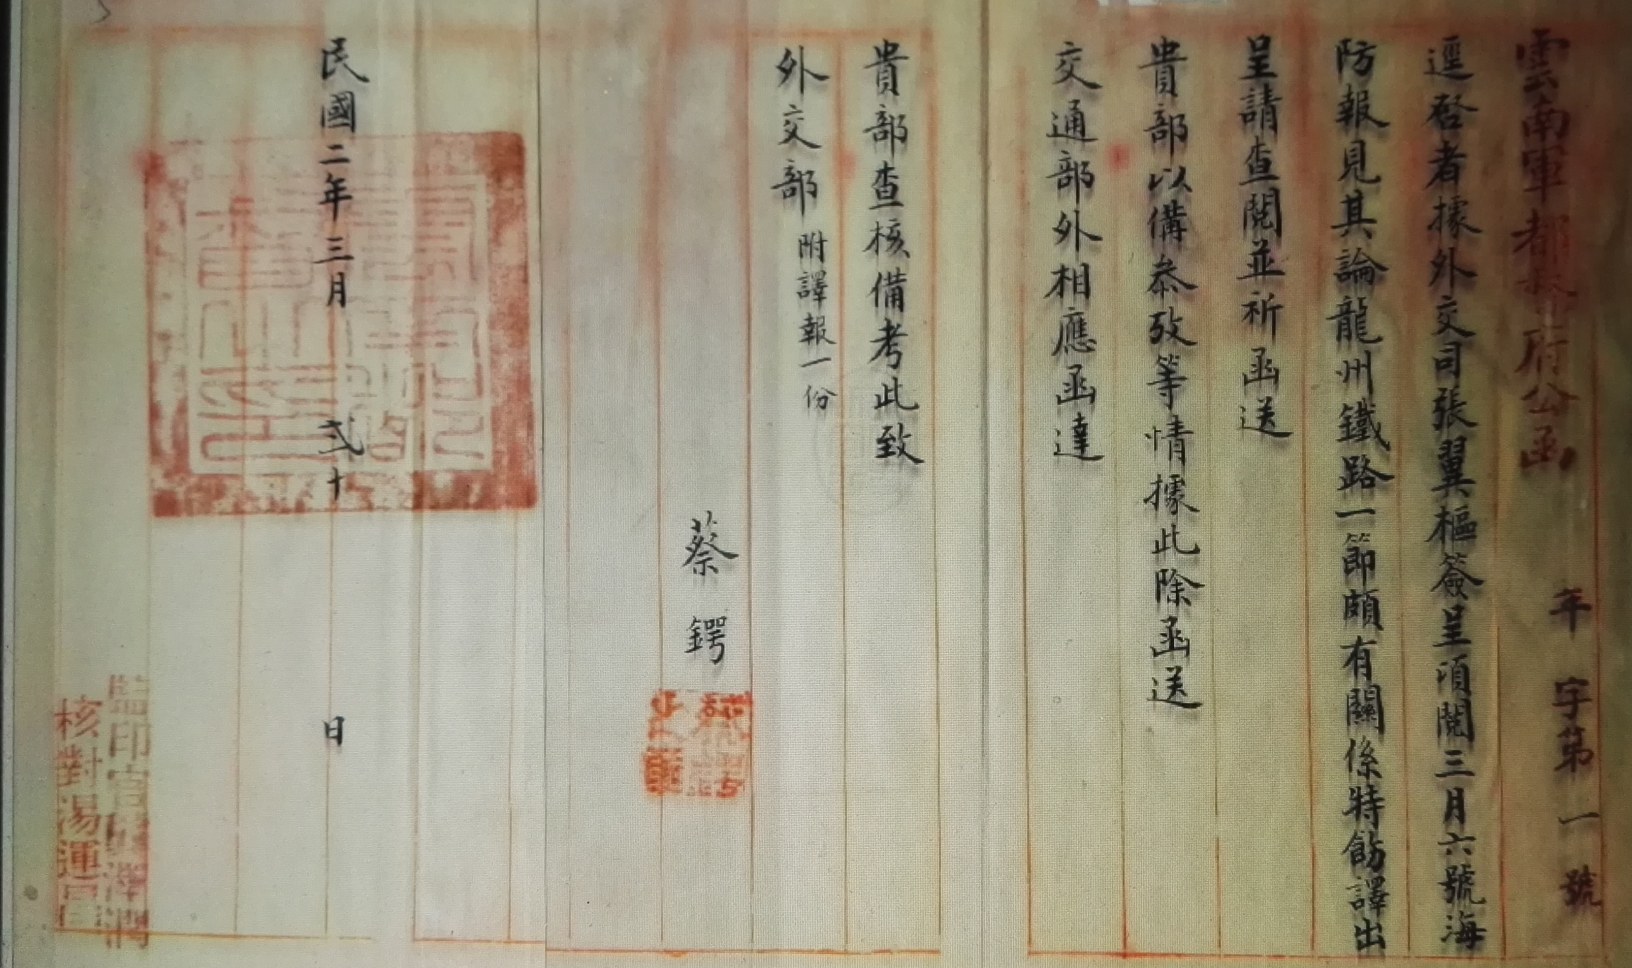 雲南軍都督府公函
年 字第一號
逕啓者據外交司張翼樞簽呈項閱三月六號海
防報見其論龍州鐵路一節頗有關係特飭譯出
呈請查閱並祈函送
貴部以備叅攷等情據此除函送
交通部外相應函達
貴部查核備考此致
外交部 附譯報一份
蔡鍔
民國二年三月 弍十 日
監印官
核對湯運